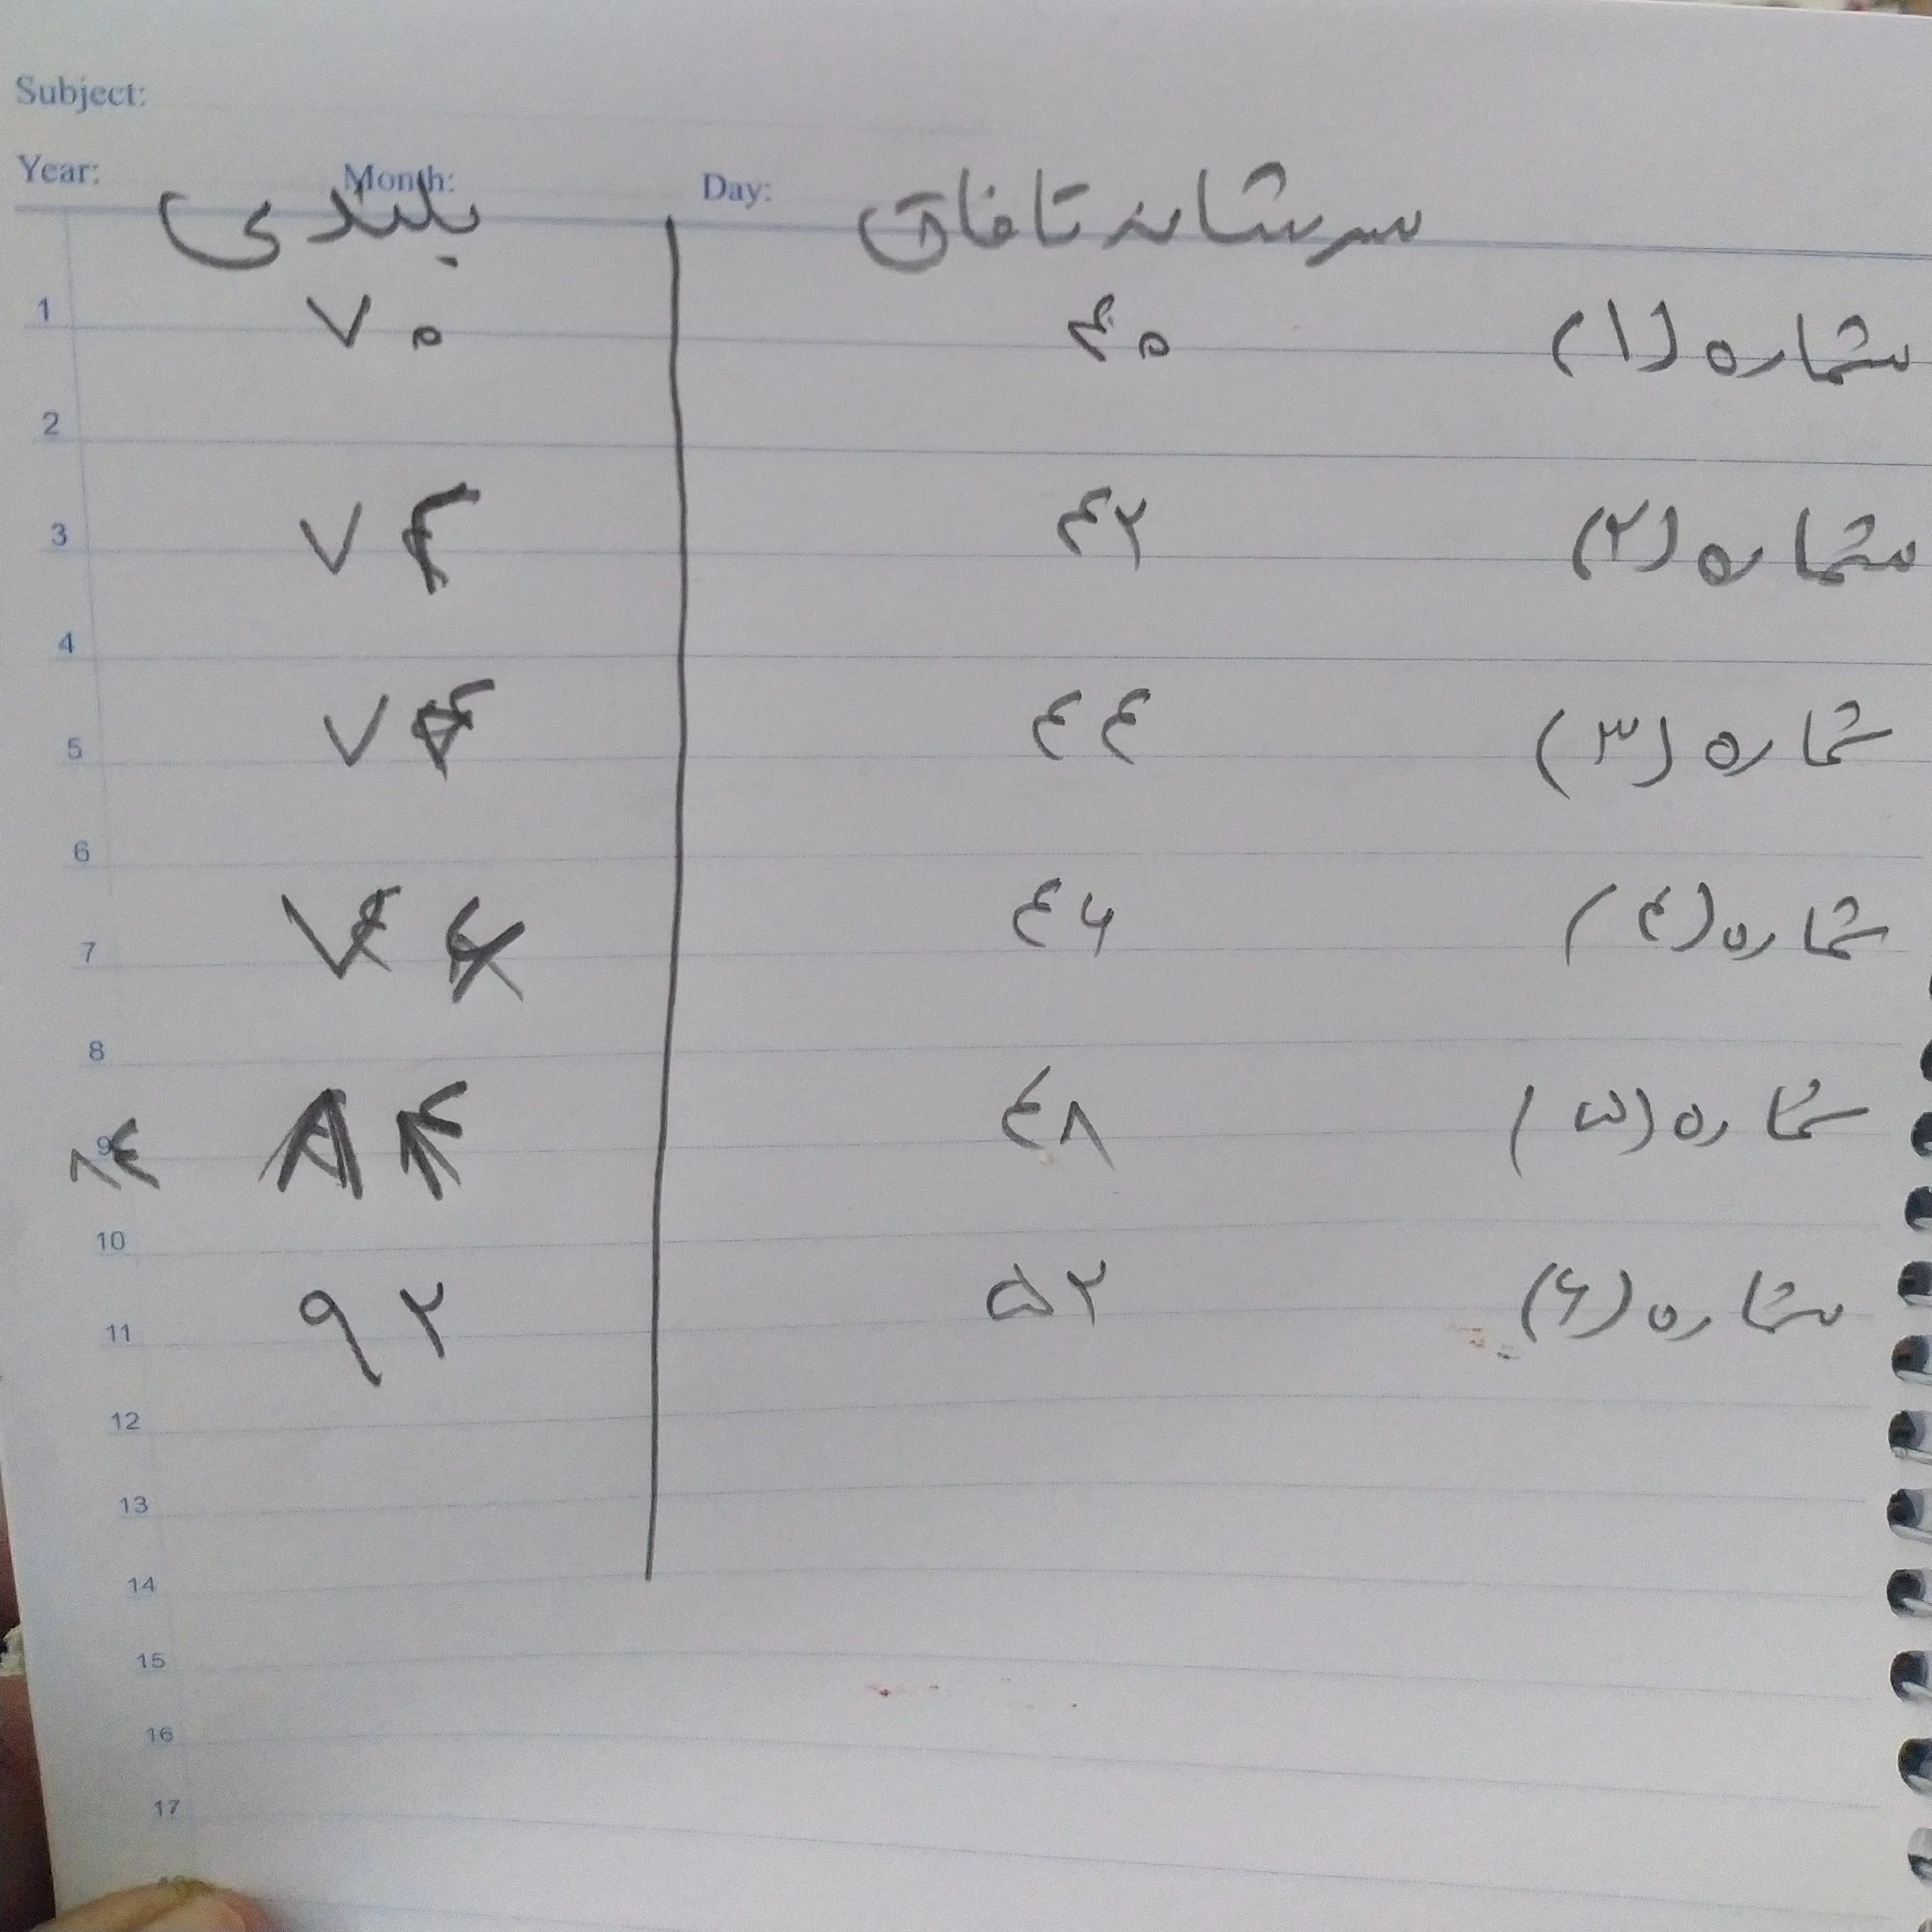 Subject:
Year: Month: Day:
سرشانه تا فاق بلندی
1
شماره (۱) ۴۰ ۷۰
2
شماره (۲) ۴۲ ۷۴
3
4
شماره (۳) ۴۴
5
6
شماره (۴) ۴۶
7
8
شماره (۵) ۴۸ ۸۴ ۸۴
9
10
شماره (۶) ۵۲ ۹۲
11
12
13
14
15
16
17